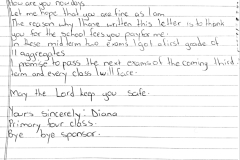 How are you now days
Let me hope that you are fine as I am
The reason why I have written this letter is to thank
you for the school fees you pay for me.
In these mid term two exams I got a first grade of
11 aggregates.
I promise to pass the next exams of the coming third
term and every class I will face.
May the Lord keep you safe.
Yours sincerely: Diana
Primary four class.
Bye bye sponsor.